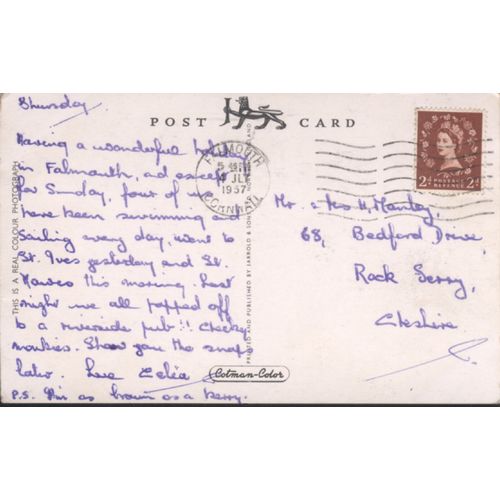 Thursday
POST CARD
Having a wonderful
in Falmouth,
for Sunday, four of us
have been swimming and
sailing every day, went to
St. Ives yesterday and St.
Mawes this morning. Last
night we all popped off
to a riverside pub!! Cheeky
monkies. Show you the snaps
later. Love Celia
P.S. I'm as brown as a berry.
THIS IS A REAL COLOUR PHOTOGRAPH
FALMOUTH
JLY
1957
CORNWALL
POSTAGE REVENUE
2d 2d
Mr. & Mrs H. Manley,
68, Bedford Drive,
Rock Ferry,
Cheshire.
PRINTED AND PUBLISHED BY JARROLD & SONS
Cotman-Color